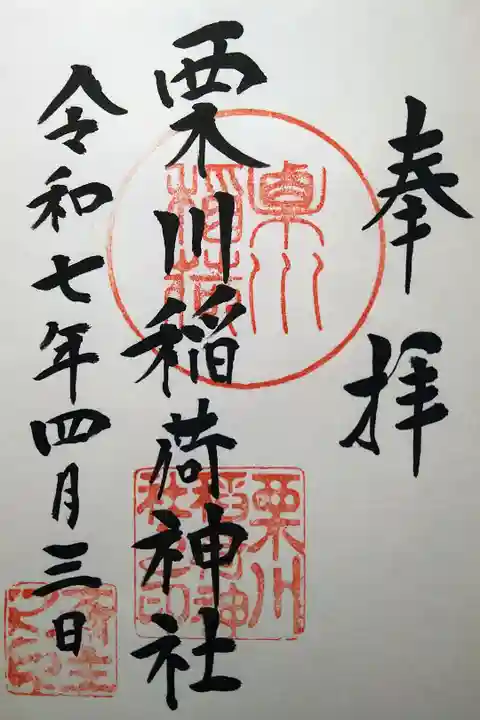 奉拝
栗川稲荷神社
令和七年四月三日
栗川
稲荷
栗川
稲荷神
社之印